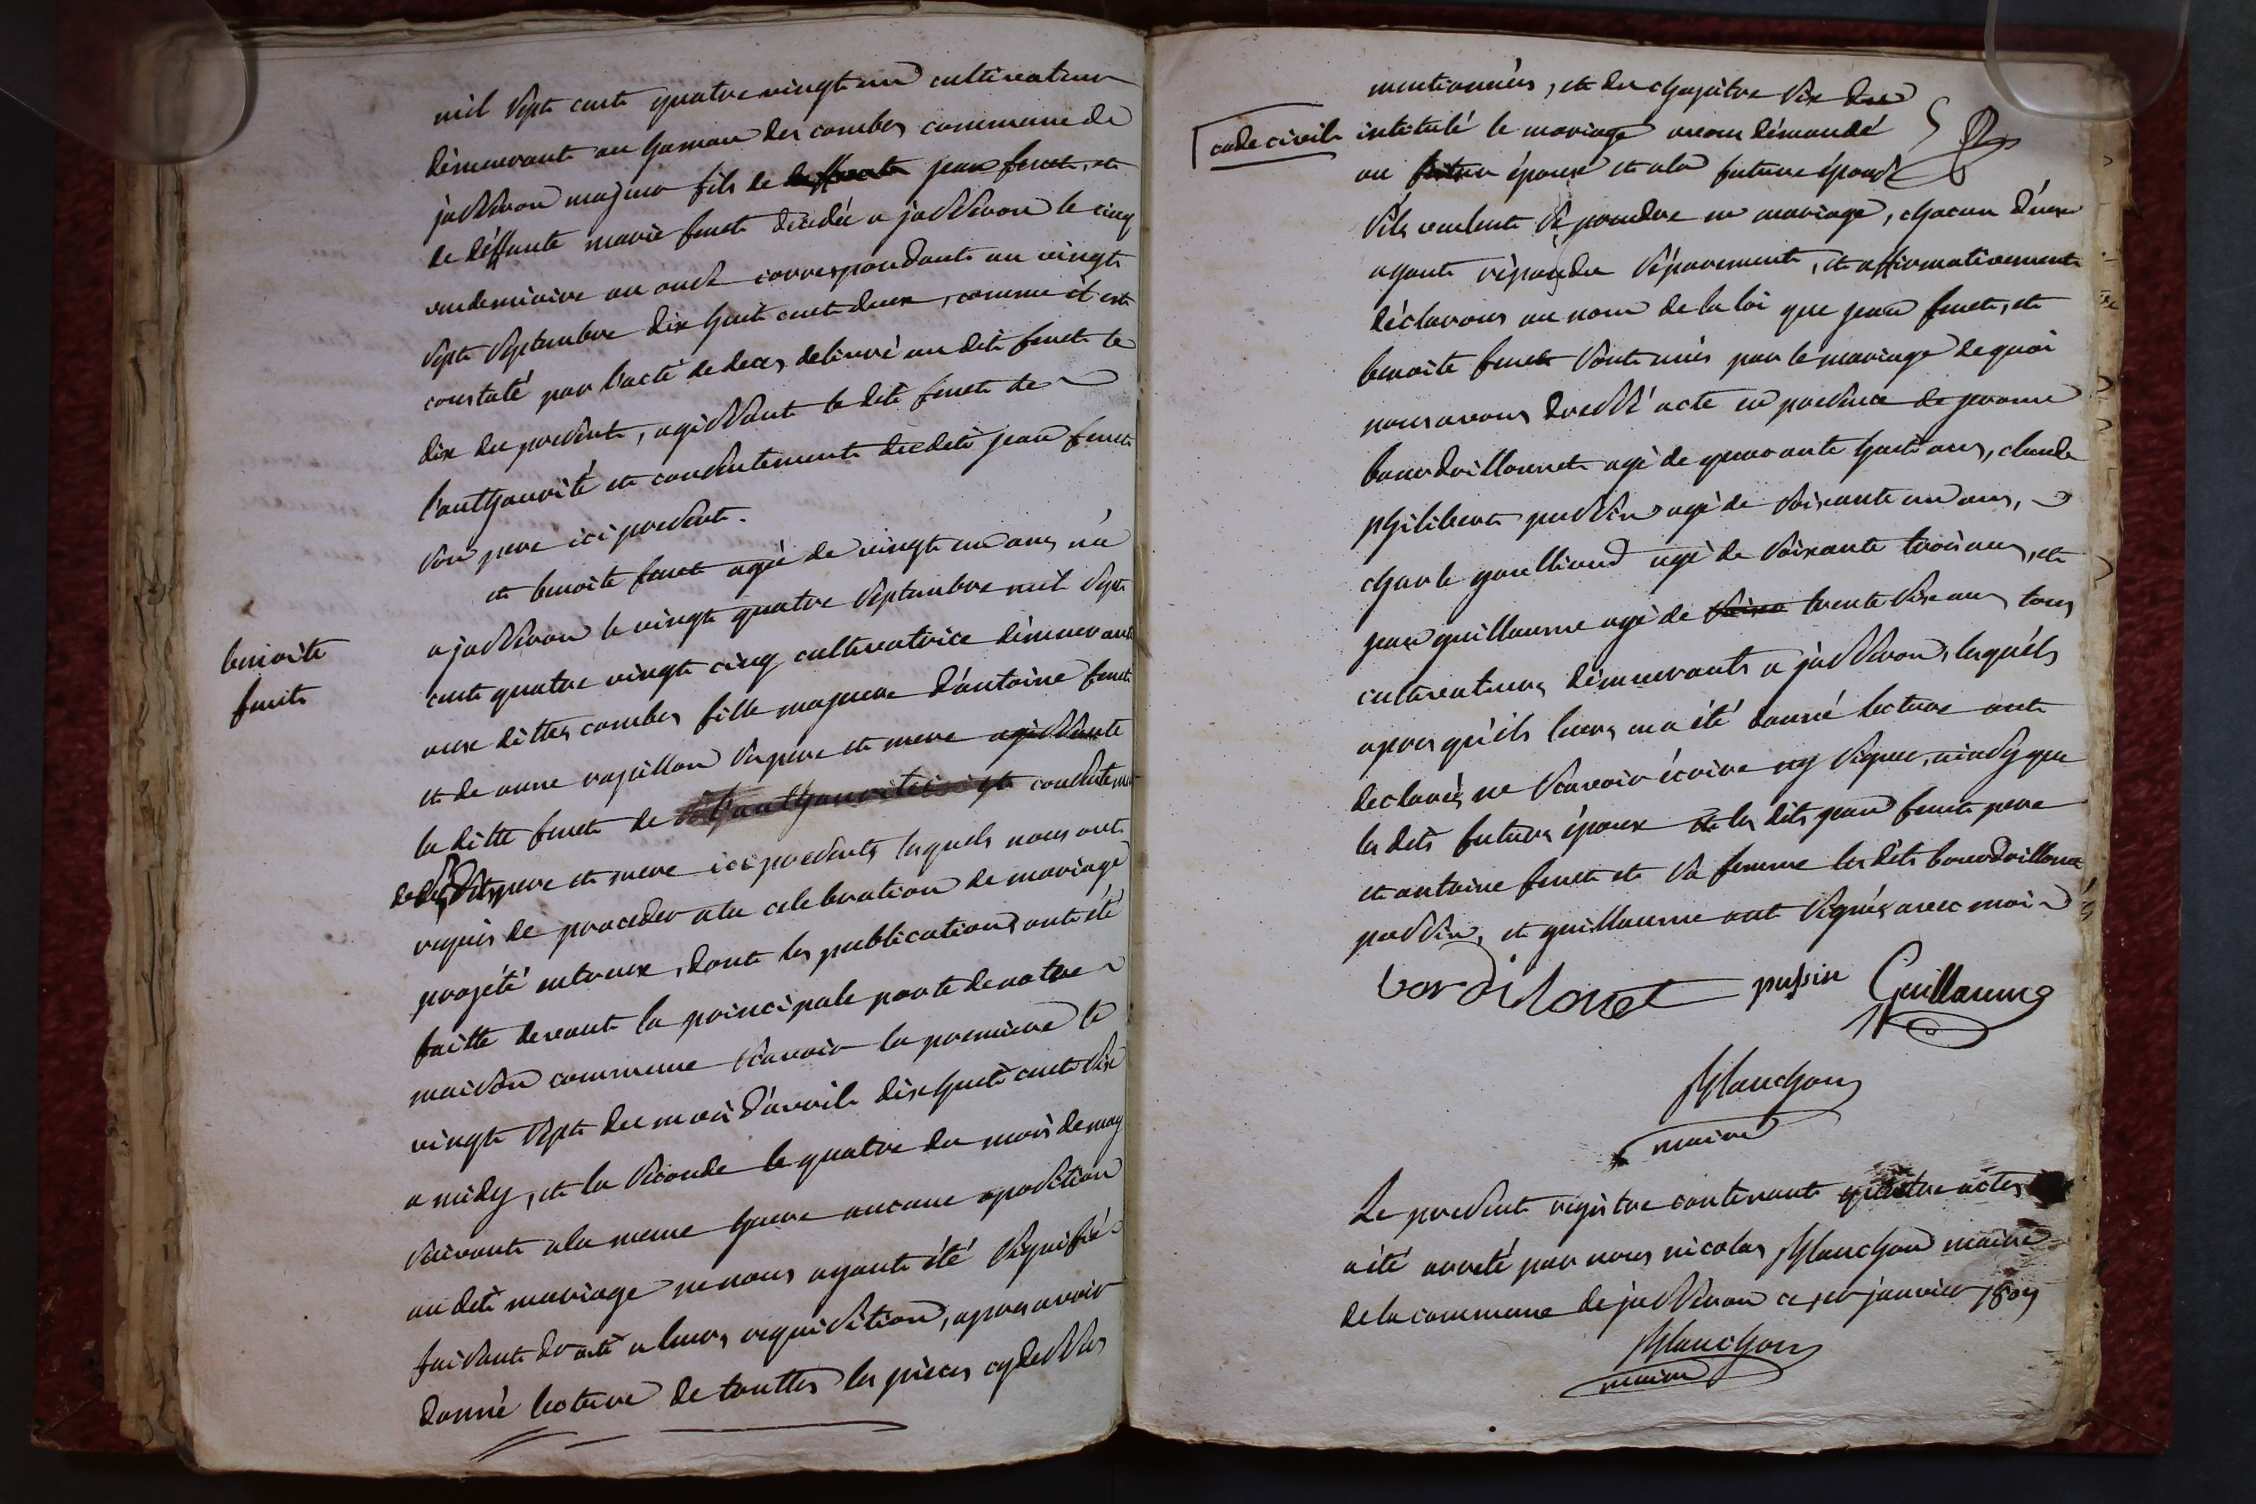 mil sept cent quatre vingt un cultivateur
démeurant au hamau des combes commune de
jasseron majeur fils de jean fenet, et
de déffunte marie fenet décédée a jasseron le cinq
vendemiaire an onze correspondant au vingt
sept septembre dix huit cent deux, comme il est
constaté par l'acte de deces delivré au dit fenet le
dix du présent, agissant le dit fenet de
l'authaurité et consentement du dit jean fenet
son pere ici présent.
et benoite fenet agée de vingt un ans née
benoite
fenet
a jasseron le vingt quatre septembre mil sept
cent quatre vingt cinq cultivatrice démeurant
aux dittes combes fille majeure d'antoine fenet
et de anne rapillon ses pere et mere agissante
la ditte fenet de l'authaurité et consentement
de ses dits pere et mere ici présents lesquels nous ont
requis de proceder a la celebration de mariage
projété entreux, dont les publications ont été
faitte devant la principale porte de notre
maison commune scavoir la premiere le
vingt sept du moi d'avril dix huit cent six
a midy, et la seconde le quatre du mois de may
suivant a la meme heure aucune oposition
au dit mariage ne nous ayant été signifié
faisant droit a leurs requisition, apres avoir
donné lecture de touttes les pieces cy dessus
mentionnées, et du chapitre six du
code civil intitulé le mariage avons démandé
au futur époux et a la future épouse
s'ils veulent se prendre en mariage, chacun d'eux
ayant répondu séparement, et affirmativement
déclarons au nom de la loi que jean fenet, et
benoite fenet sont unis par le mariage de quoi
nous avons dressé acte en présence de jerome
bourdoillonnet agé de quarante huit ans, claude
philibert pussin agé de soixante un ans,
charle goulliaud agé de soixante trois ans, et
jean guillaume agé de soixa trente six ans tous
cultivateurs démeurants a jasseron, lesquéls
apres qu'ils leurs en a été donné lecture ont
déclarés ne scavoir écrire ny signer, ainsy que
les dits futurs époux et les dits jean fenet pere
et antoine fenet et sa femme les dits bourdoillonnet
pussin, et guillaume ont signés avec moi
bordilonet pussin Guillaume
Planchon
maire
Le présent registre contenant quatre actes
a été arreté par nous nicolas Planchon maire
de la commune de jasseron ce 1er janvier 1807
Planchon
maire